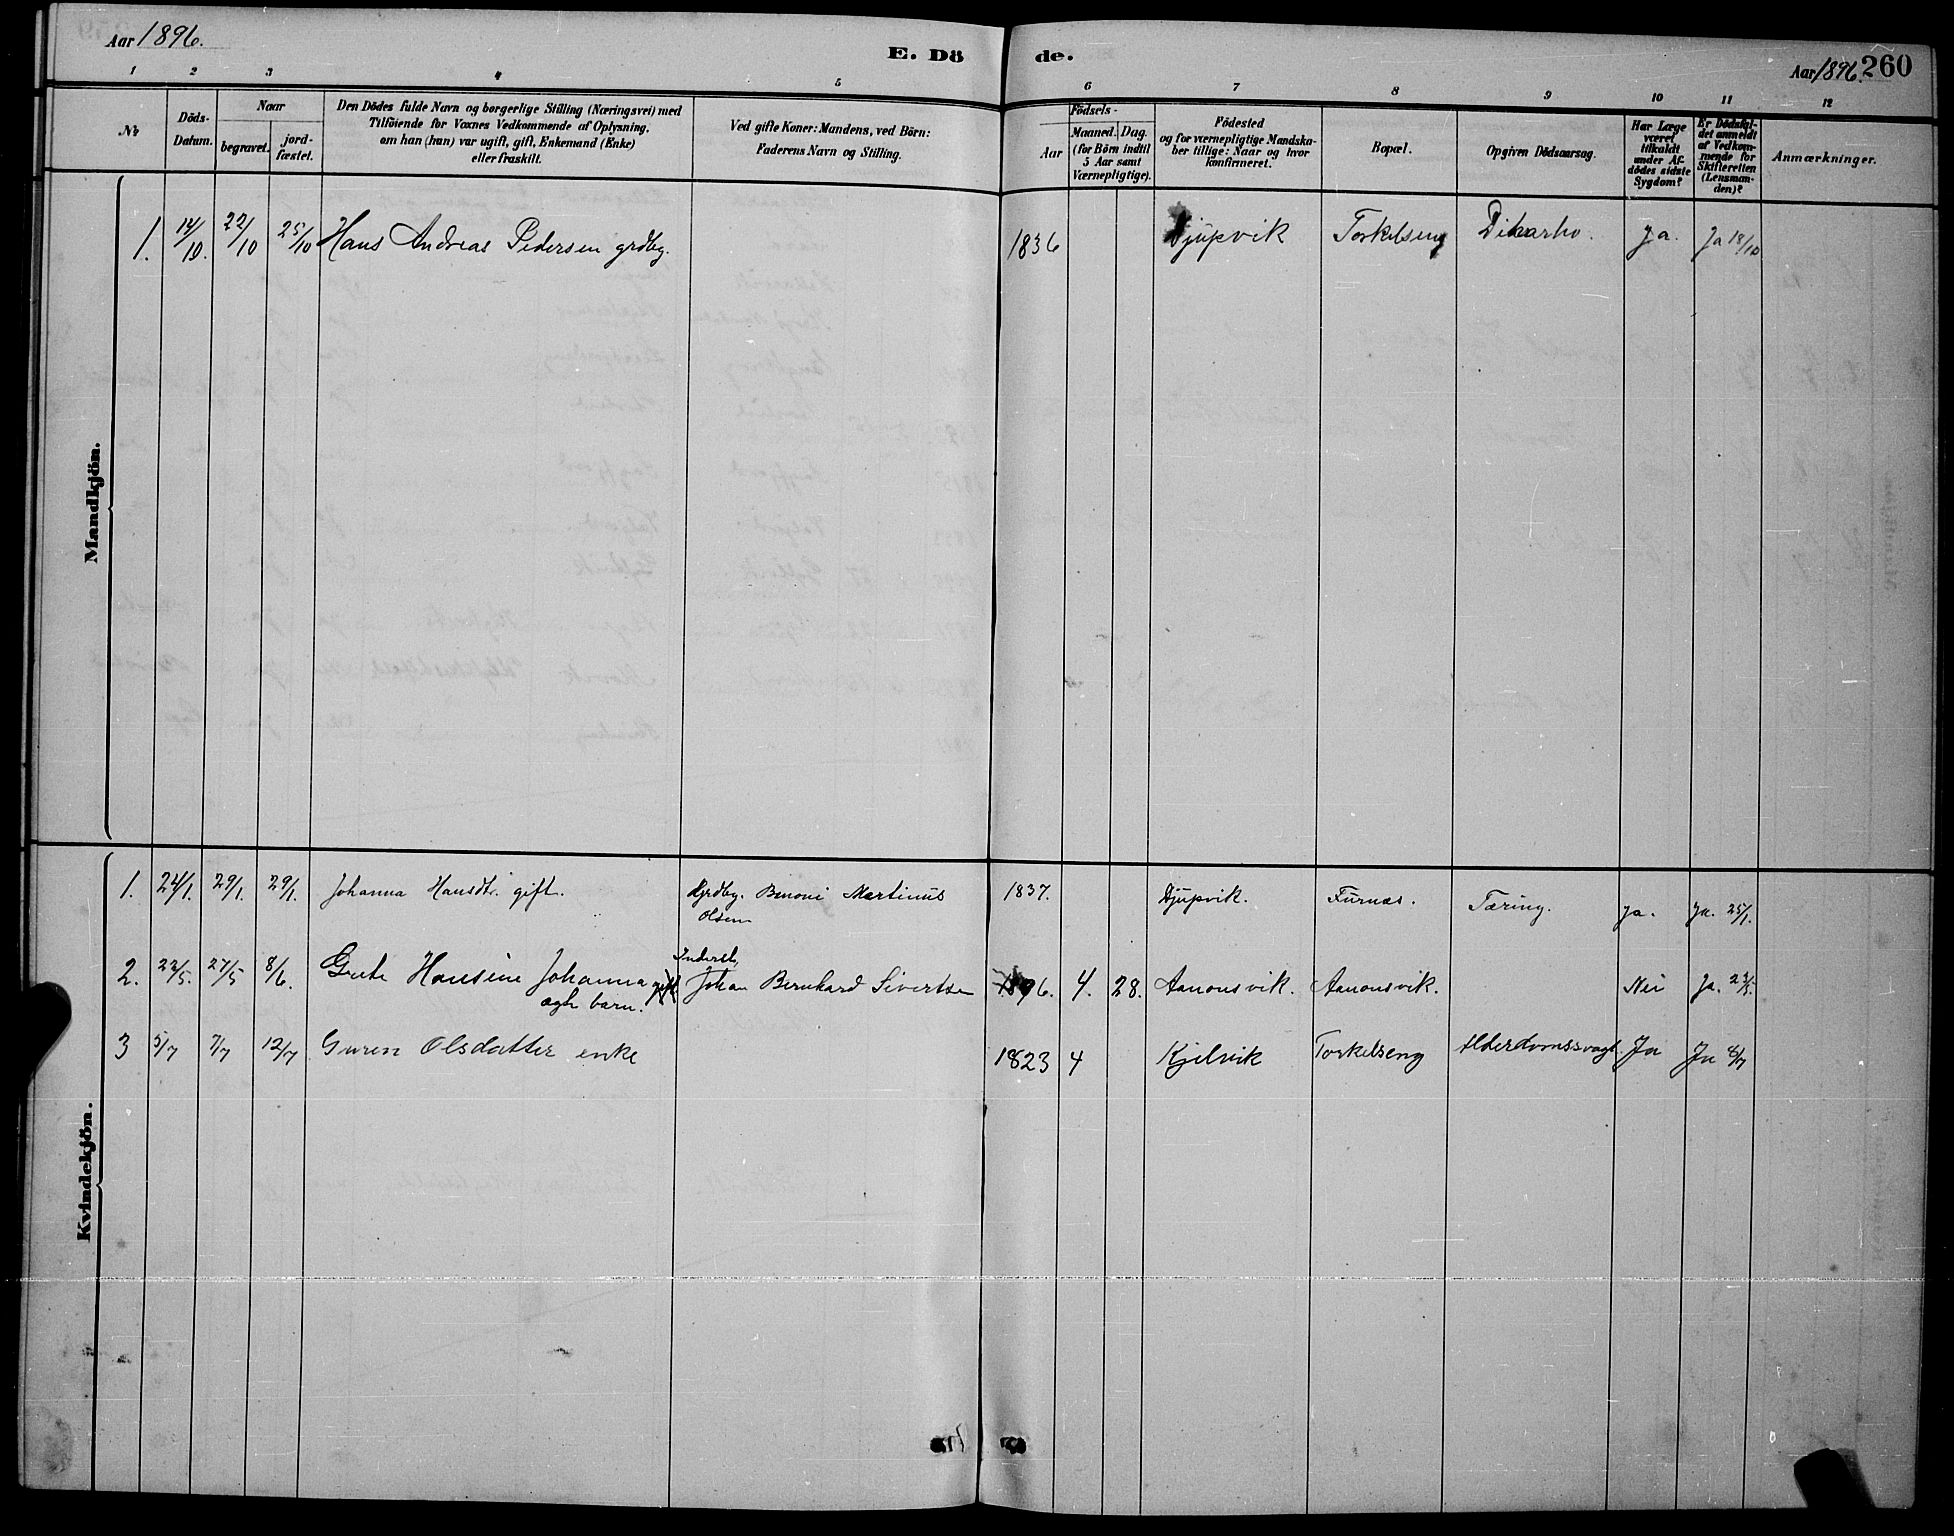 Aar 1896.
E. Dö
de.
Aar 1896. 260
1 2 3 4 5 6 7 8 9 10 11 12
No
Döds-
Datum.
Naar
begravet.
jord-
fæstet.
Den Dödes fulde Navn og borgerlige Stilling (Næringsvei) med
Tilföiende for Voxnes Vedkommende af Oplysning,
om han (hun) var ugift, gift, Enkemand (Enke)
eller fraskilt.
Ved gifte Koner: Mandens, ved Börn:
Faderens Navn og Stilling.
Födsels-
Aar
Maaned.
Dag.
(for Börn indtil
5 Aar samt
Værnepligtige).
Födested
og for værnepligtige Mandska-
ber tillige: Naar og hvor
konfirmeret.
Bopæl.
Opgiven Dödsaarsag.
Har Læge
været
tilkaldt
under Af-
dödes sidste
Sygdom?
Er Dödsfal-
det anmeldt
af Vedkom-
mende for
Skifteretten
(Lensman-
den)?
Anmærkninger.
Mandkjön.
1. 14/10. 22/10 25/10 Hans Andreas Pedersen grdbg. 1836 Djupvik Torkelseng Ja. Ja 18/10
Kvindekjön.
1. 24/1. 29/1. 29/1. Johanna Hansdtr. gift. Benoni Martinus 1837. Djupvik. Furnæs. Tæring. Ja. Ja. 25/1.
Olsen
Inderst,
2. 22/5. 27/5 8/6. Hansine Johanna Johan Bernhard Sivertsen 1896. 4. 28. Aanonsvik. Aanonsvik. Nei Ja. 23/5.
ægte barn.
3 5/7 7/7 12/7 Guren Olsdatter enke 1823 4 Kjelvik Torkelseng Alderdomssvagh. Ja Ja 8/7